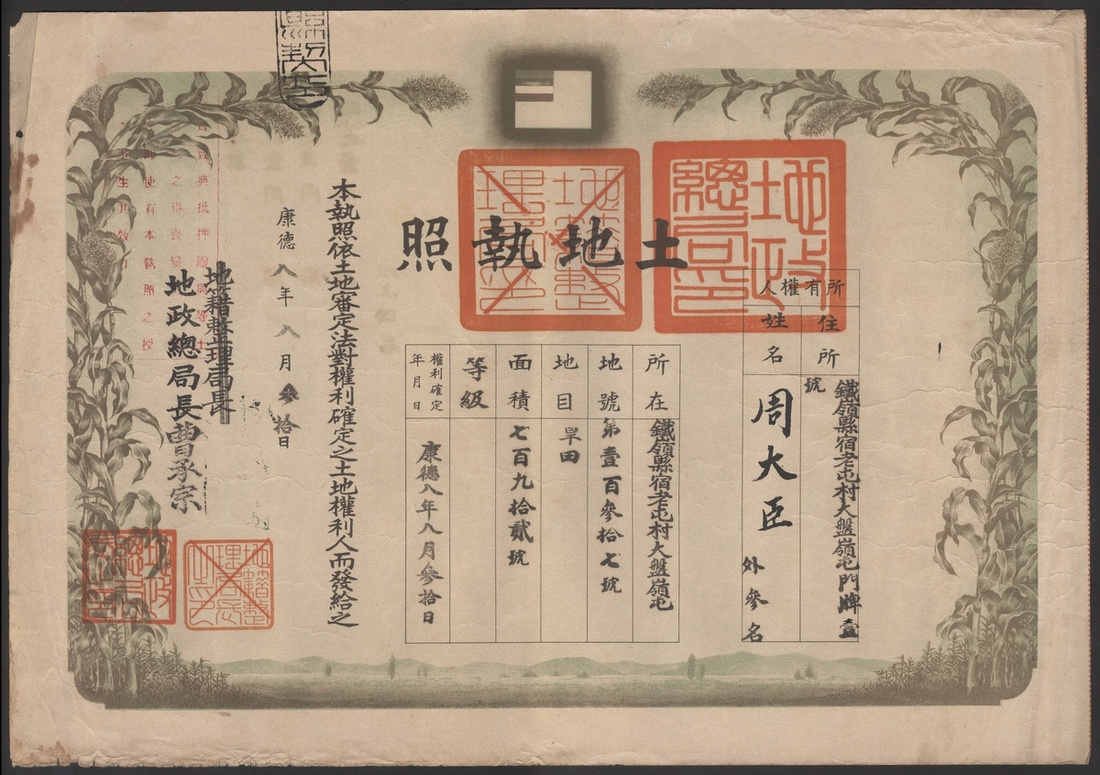 土地執照
所有權人
住所
鐵嶺縣宿老屯村大盤嶺屯門牌壹
號
姓名
周大臣
外參名
所在
鐵嶺縣宿老屯村大盤嶺屯
地號
第壹百參拾七號
地目
旱田
面積
七百九拾貳號
等級
權利確定
年月日
康德八年八月參拾日
本執照依土地審定法對權利確定之土地權利人而發給之
康德八年八月參拾日
地籍整理局長
地政總局長曹承宗
地政總局印
地籍整理局印